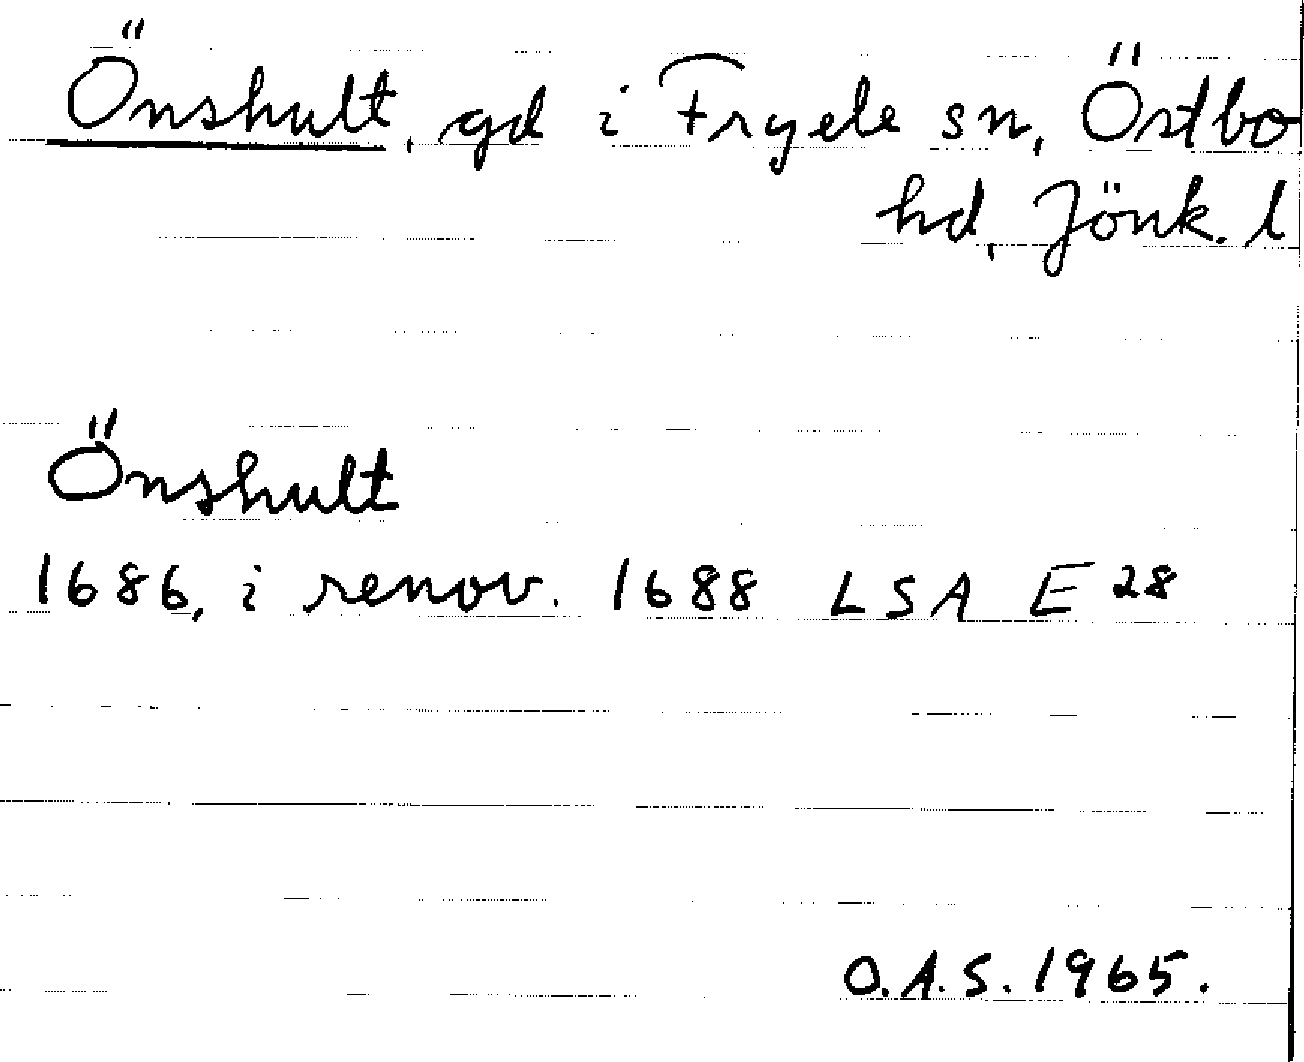 Önshult, gd i Fryele sn, Östbo
hd, Jönk. l
Önshult
1686, i renov. 1688 LSA E 28
O.A.S. 1965.